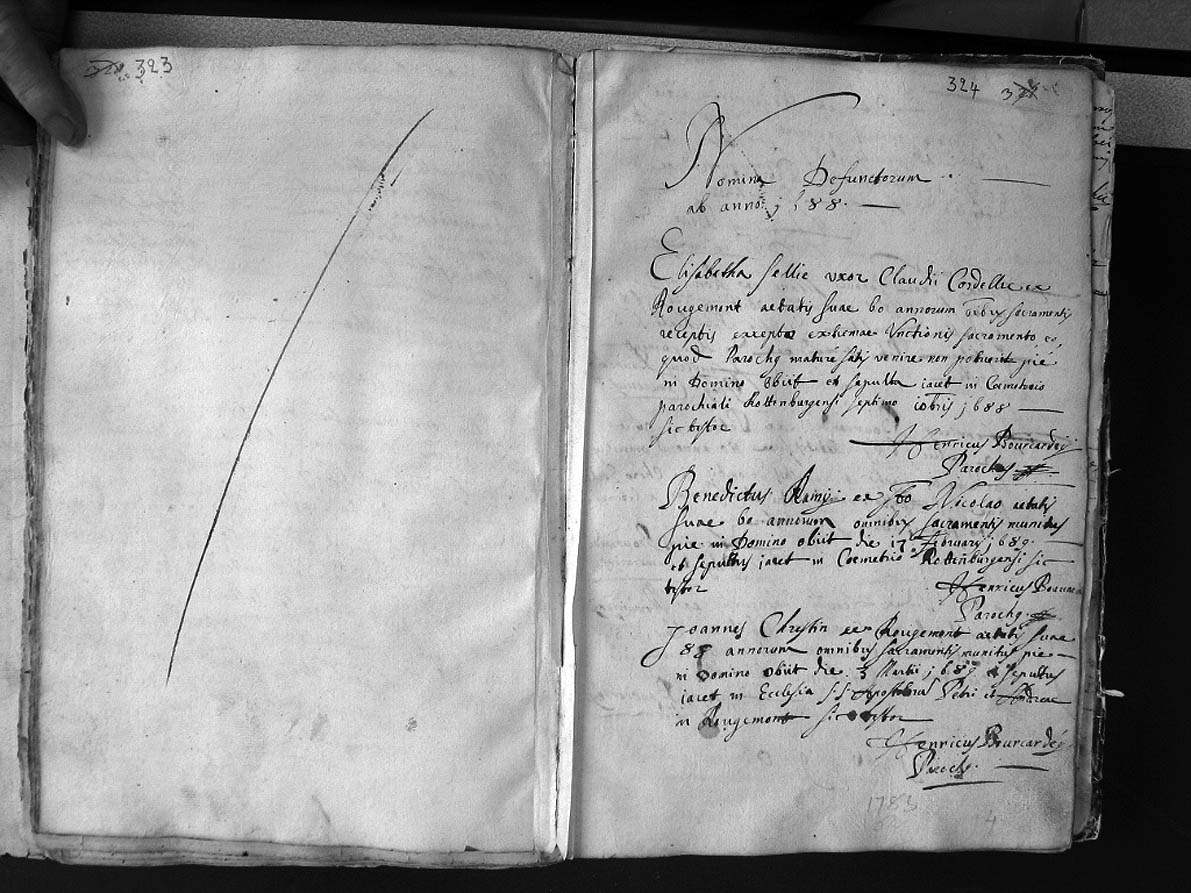 323
324
Nomina Defunctorum
ab anno 1688.
Elisabetha Sellie uxor Claudii Cordellie ex
Rougemont aetatis suae 60 annorum Sacramentis
receptis excepto extremae Unctionis sacramento, eo,
quod Parochq mature satis venire non potuerit pie
in Domino obiit et sepulta iacet in Coemeterio
parochiali Rottenburgensi septimo 10bris 1688
sic testor
Henricus Bourcardey
Parochus
Benedictus Ramij ex Sto Nicolao aetatis
suae 60 annorum omnibus sacramentis munitus
pie in Domino obiit die 17 Februarij 1689.
et sepultus iacet in Coemetrio Rottenburgensi sic
testor
Henricus
Parochq.
Joannes Chrestin ex Rougemont aetatis suae
88 annorum omnibus sacramentis munitus pie
in Domino obiit die 3 Martii 1689 et sepultus
iacet in Ecclesia S.S. Apostolorum Petri et Andreae
in Rougemont sic testor
Henricus Bourcardey
Parochq.
1783